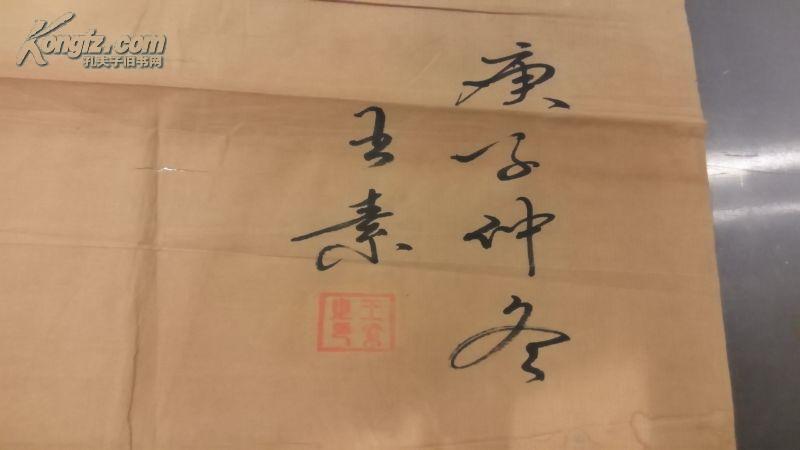 庚子仲冬
王素
Kongfz.com
孔夫子旧书网